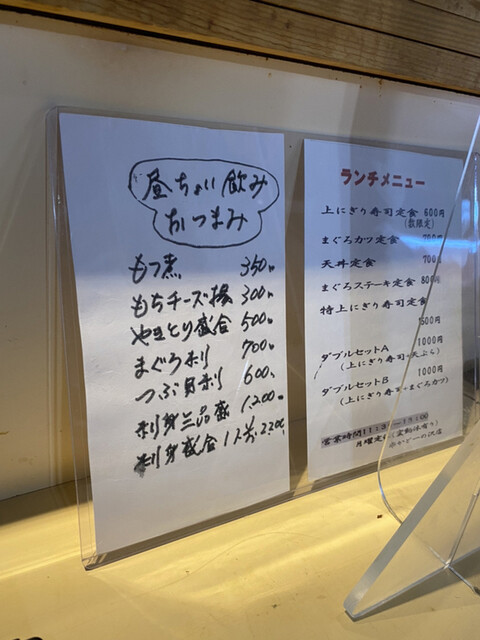 昼ちょい飲み
おつまみ
もつ煮 350円
もちチーズ揚 300円
やきとり盛合 500円
まぐろ刺 700円
つぶ貝刺 600円
刺身三品盛 1,200円
刺身盛合 1人前 2,200円
ランチメニュー
上にぎり寿司定食 600円
(数限定)
まぐろカツ定食 700円
天丼定食 700円
まぐろステーキ定食 800円
特上にぎり寿司定食
1500円
ダブルセットA 1000円
(上にぎり寿司+天ぷら)
ダブルセットB 1000円
(上にぎり寿司+まぐろカツ)
営業時間11:30―15:00
月曜定休(変動休有り)